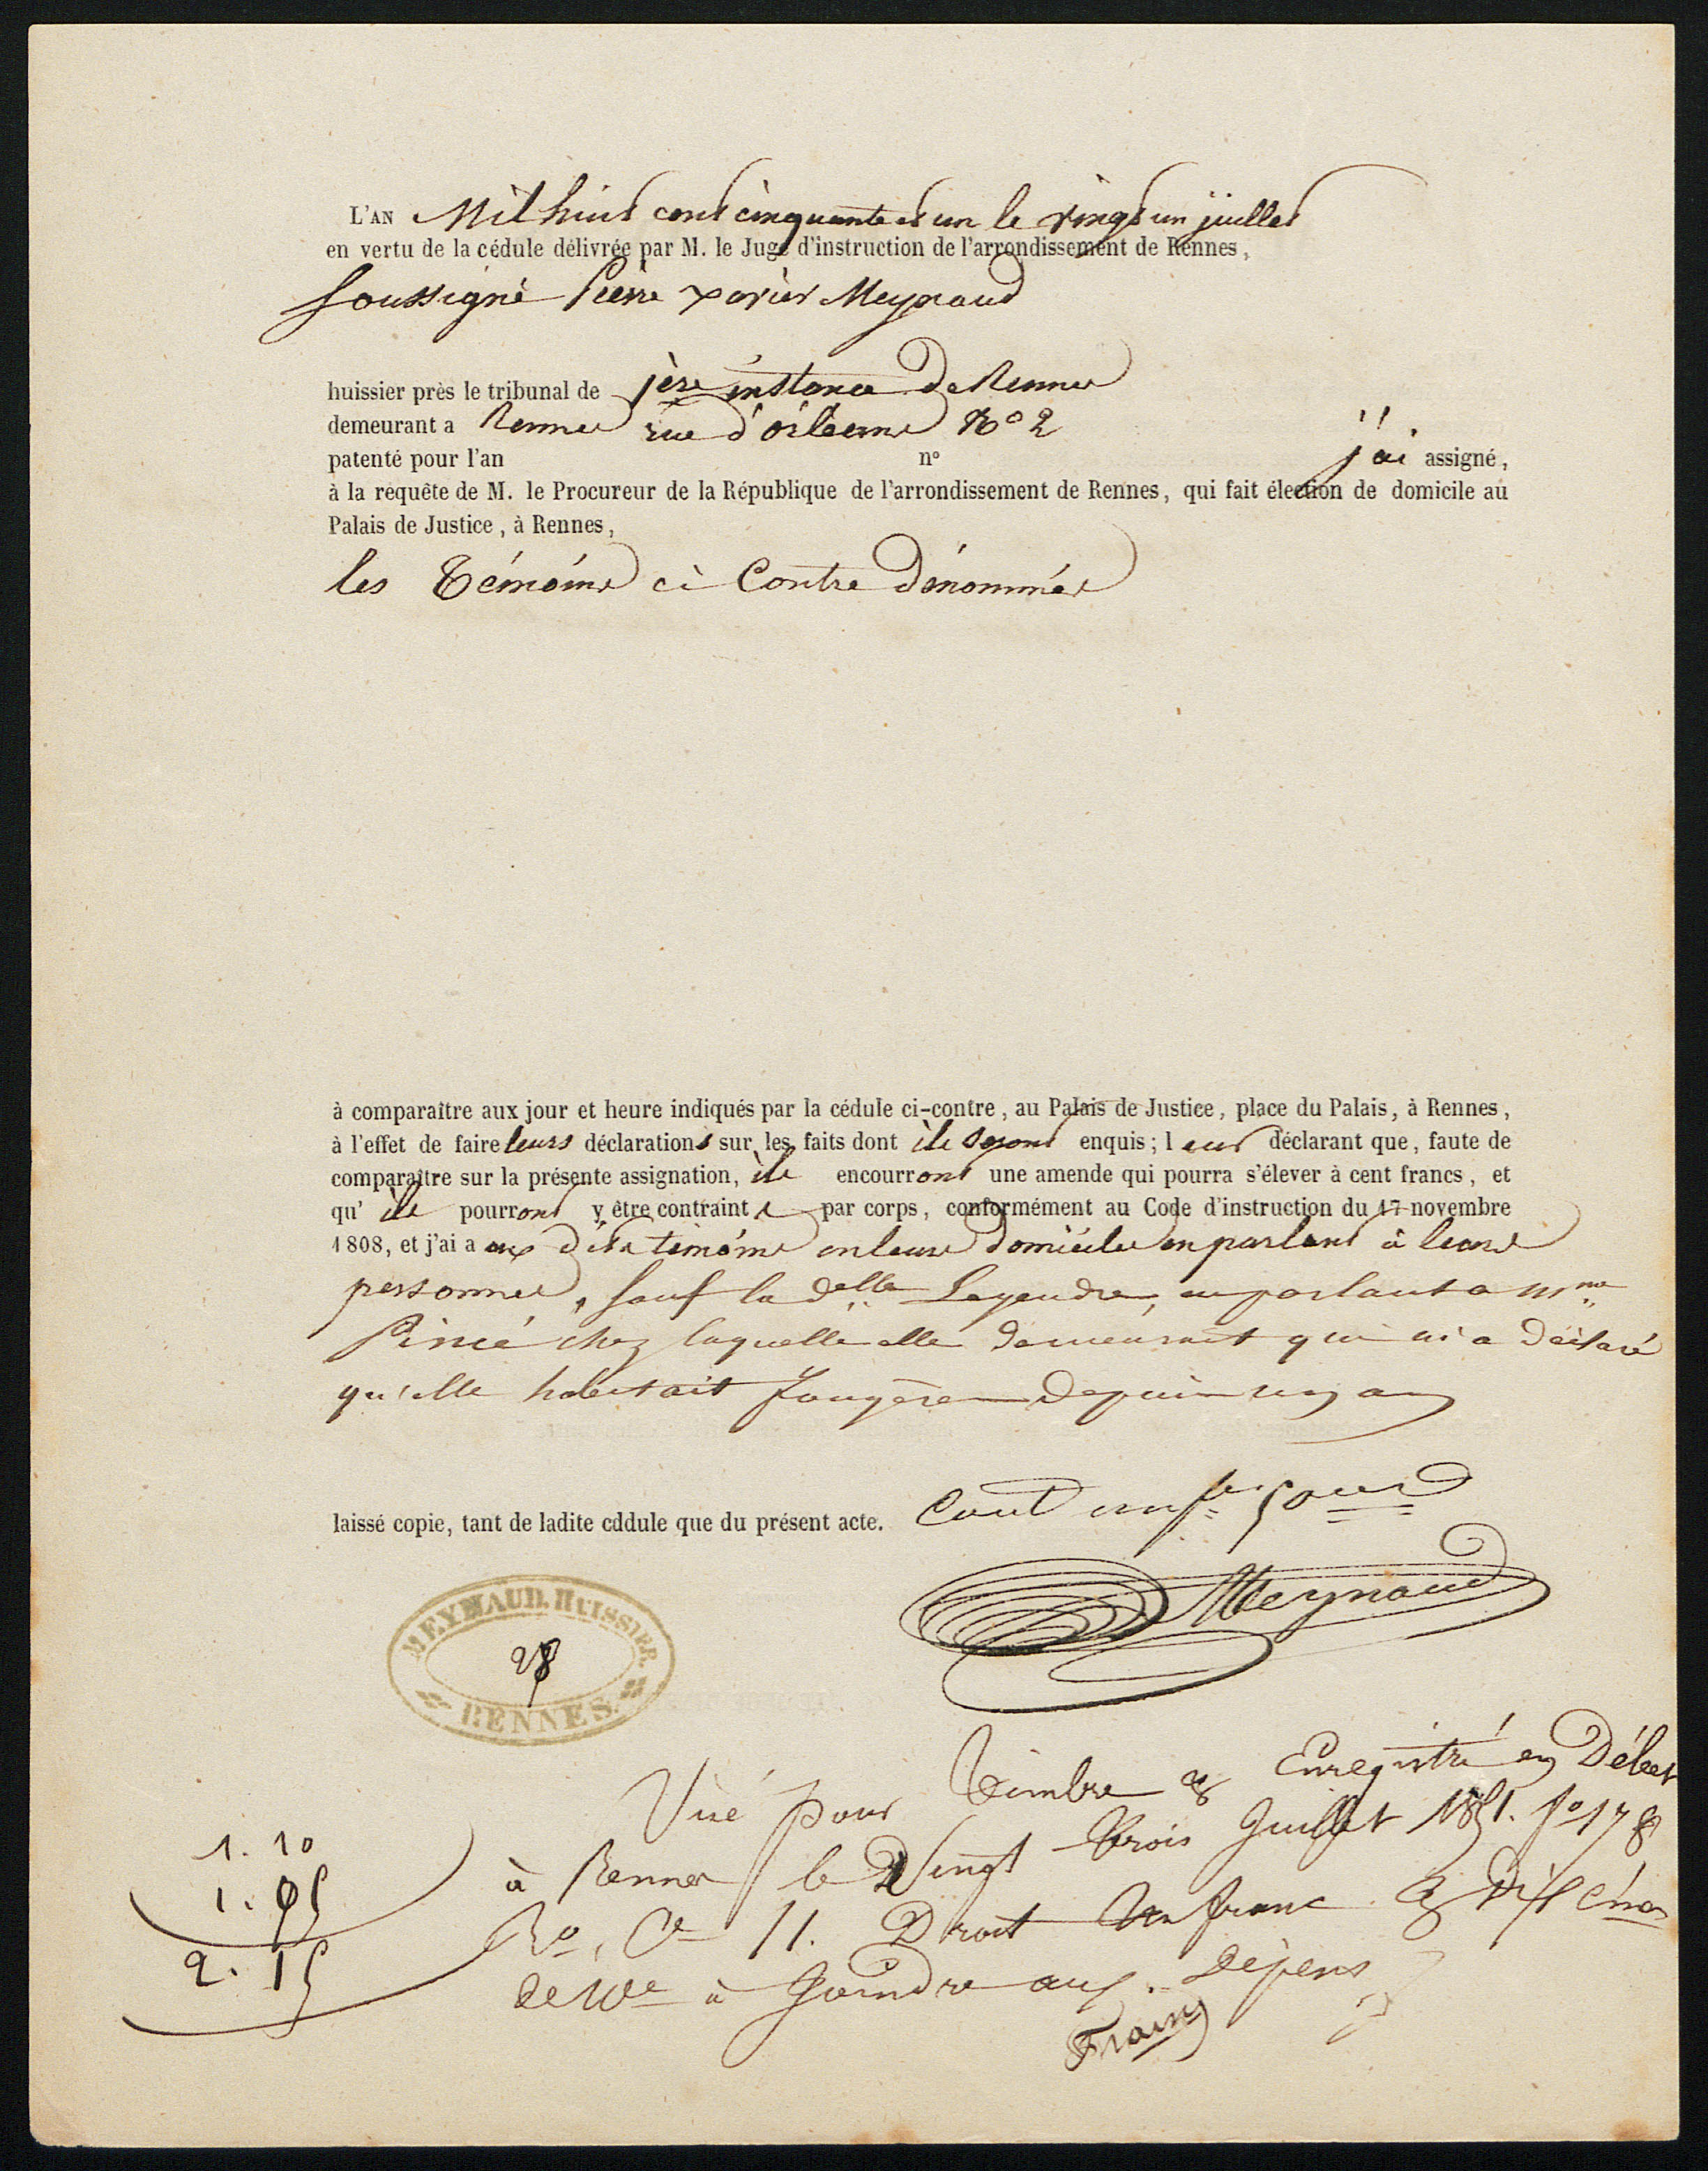 L'AN Mil huit cent cinquante et un le vingt un juillet
en vertu de la cédule délivrée par M. le Juge d'instruction de l'arrondissement de Rennes,
soussigné Pierre xavier Meynaud
huissier près le tribunal de 1ère instance de Rennes
demeurant a Rennes rue d'orléans No 2
patenté pour l'an n° j'ai assigné,
à la requête de M. le Procureur de la République de l'arrondissement de Rennes, qui fait élection de domicile au
Palais de Justice, à Rennes,
les témoins ci Contre dénommés
à comparaître aux jour et heure indiqués par la cédule ci-contre, au Palais de Justice, place du Palais, à Rennes,
à l'effet de faire leurs déclarations sur les faits dont ils seront enquis; leur déclarant que, faute de
comparaître sur la présente assignation, ils encourront une amende qui pourra s'élever à cent francs, et
qu' ils pourront y être contraints par corps, conformément au Code d'instruction du 17 novembre
1808, et j'ai a aux dits témoins en leurs domiciles en parlant à leurs
personnes, sauf la delle Legendre, en parlant a mme
Pincé chez laquelle elle demeurait qui m'a déclaré
qu'elle habitait fougères depuis un an
laissé copie, tant de ladite cddule que du présent acte. Cout
Meynaud
MEYNAUD, HUISSIER,
28
RENNES.
Visé pour timbre & Enregistré en Débet
à Rennes le Vingt trois Juillet 1851. fo 178
Ro, Ce 11. Droit Un franc & dix cmes
de 10e à Joindre aux Dépens
Frain
1. 10
1. 05
2. 15